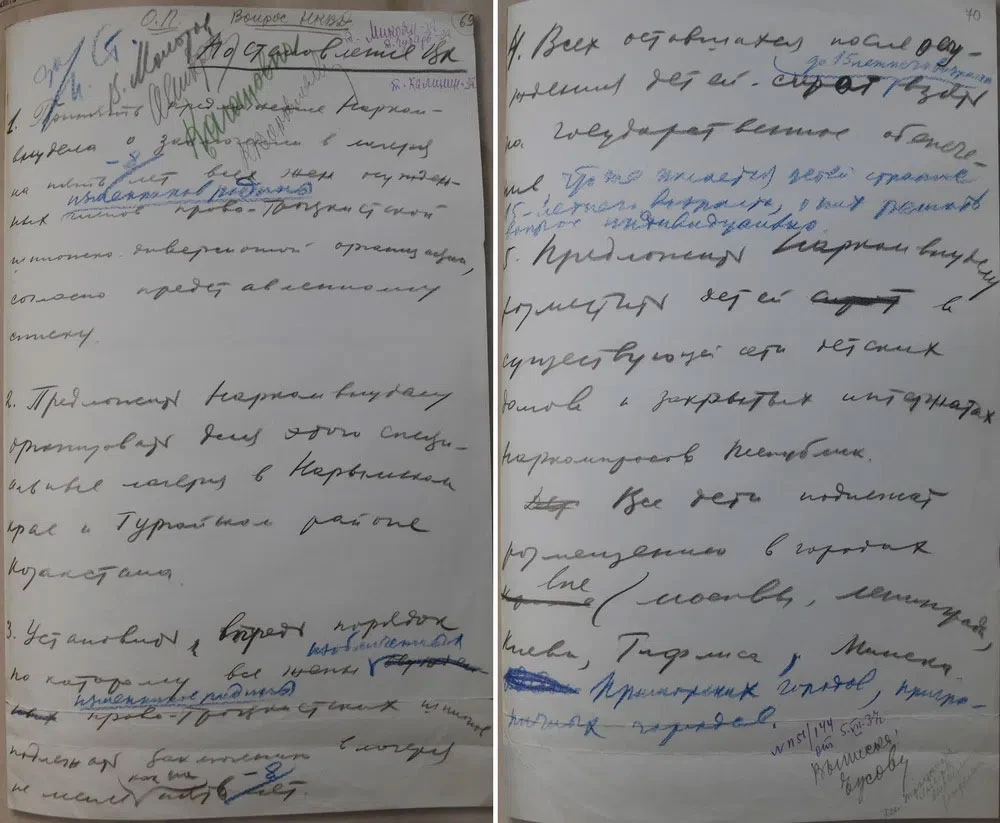 О.П. Вопрос НКВД
69
за
И. Ст
В. Молотов
Каганович
т. Микоян - за
т. Чубарь - за
т. Калинин - за
Постановление ЦК
1. Принять предложение Нарком-
внудела о заключении в лагеря
на пять - 8 лет всех жен осужден-
изменников родины
ных право-троцкистской
шпионско-диверсионной организации,
согласно представленному
списку.
2. Предложить Наркомвнуделу
организовать для этого специ-
альные лагеря в Нарымском
крае и Тургайском районе
Казахстана.
3. Установить впредь порядок
по которому все жены изобличенных
изменников родины
право-троцкистских шпионов
подлежат заключению в лагеря
не менее как на пять - 8 лет.
70
4. Всех оставшихся после осу-
до 15-летнего возраста
ждения детей сирот взять
на государственное обеспече-
ние, что же касается детей старше
15-летнего возраста, о них решать
вопрос индивидуально.
5. Предложить Наркомвнуделу
разместить детей сирот в
существующей сети детских
домов и закрытых интернатах
наркомпросов Республик.
Все дети подлежат
размещению в городах
вне Москвы, Ленинграда,
Киева, Тифлиса, Минска,
Приморских городов, погра-
ничных городов.
N П51/144
от 5.VII.37
Выписка:
Ежову